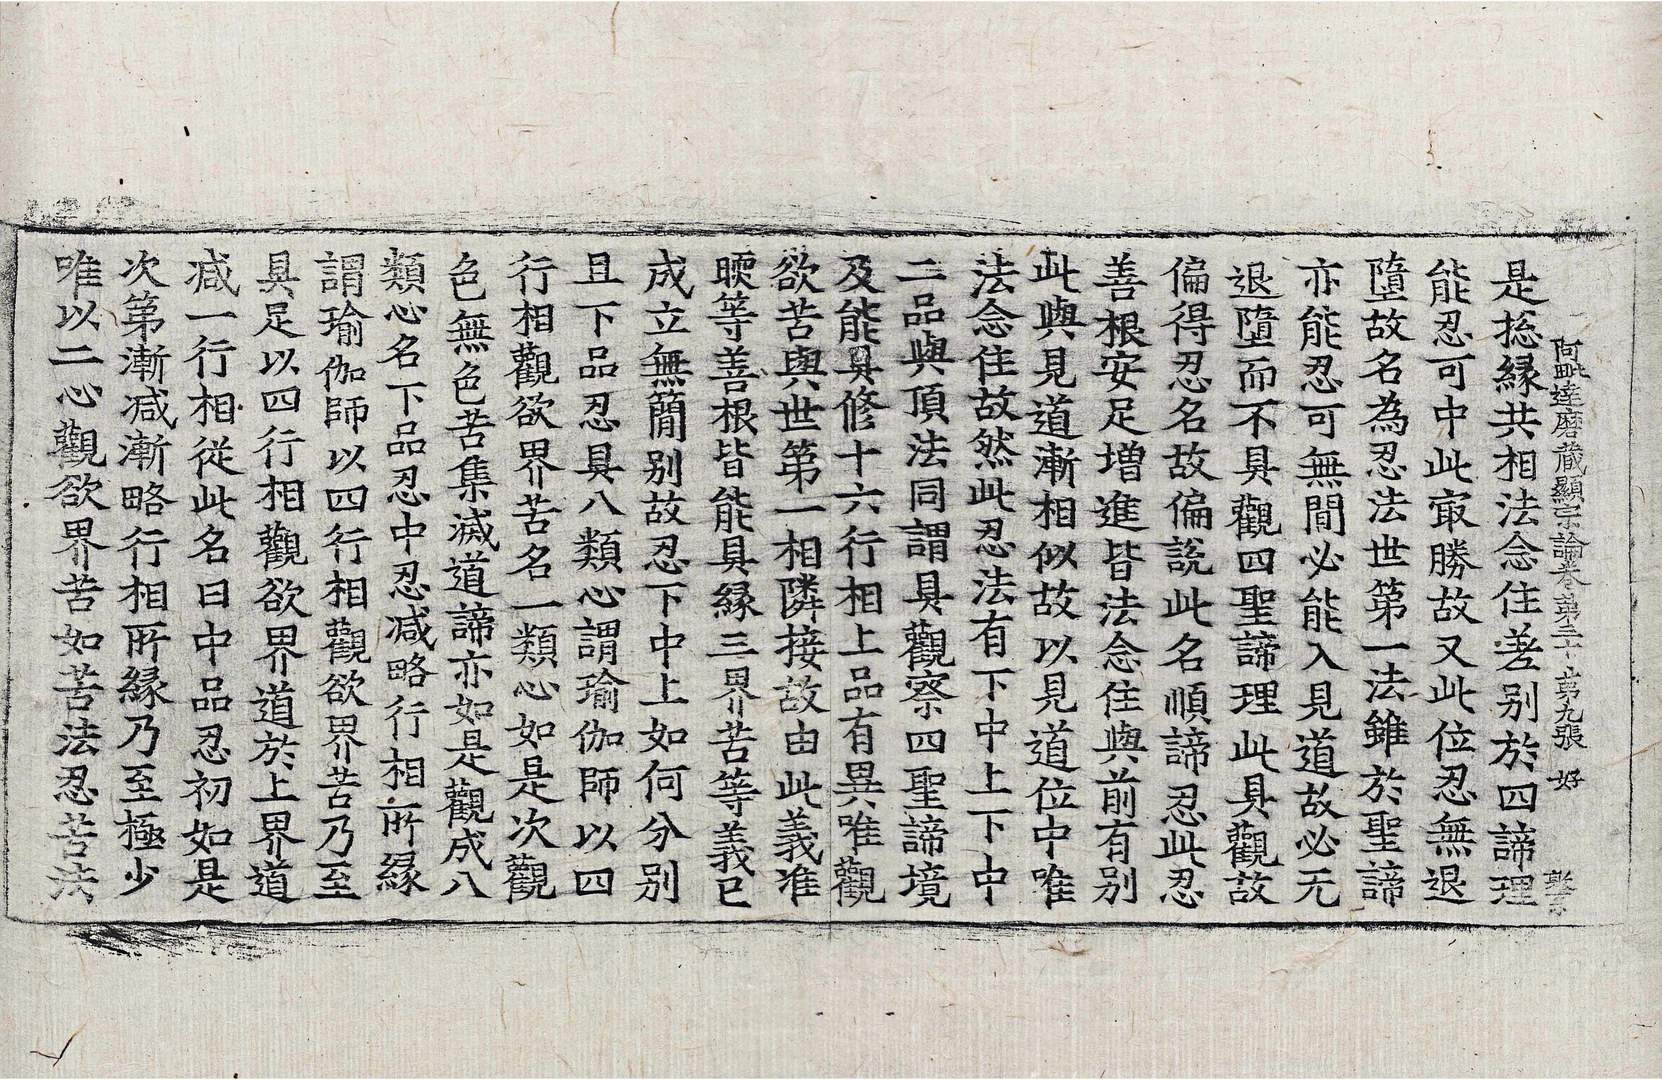 阿毗達磨藏顯宗論卷第三十 第九張 好
是捴緣共相法念住差别於四諦理
能忍可中此㝡勝故又此位忍無退
墮故名為忍法世第一法雖於聖諦
亦能忍可無間必能入見道故必无
退墮而不具觀四聖諦理此具觀故
偏得忍名故偏說此名順諦忍此忍
善根安足增進皆法念住與前有别
此與見道漸相似故以見道位中唯
法念住故然此忍法有下中上下中
二品與頂法同謂具觀察四聖諦境
及能具修十六行相上品有異唯觀
欲苦與世第一相隣接故由此義准
煗等善根皆能具緣三界苦等義已
成立無簡别故忍下中上如何分别
且下品忍具八類心謂瑜伽師以四
行相觀欲界苦名一類心如是次觀
色無色苦集滅道諦亦如是觀成八
類心名下品忍中忍减略行相所緣
謂瑜伽師以四行相觀欲界苦乃至
具足以四行相觀欲界道於上界道
减一行相從此名曰中品忍初如是
次第漸减漸略行相所緣乃至極少
唯以二心觀欲界苦如苦法忍苦法